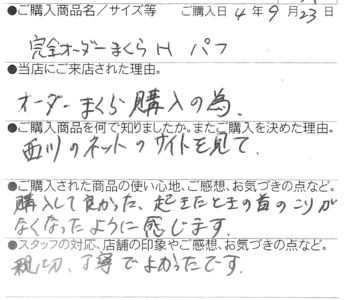 ●ご購入商品名／サイズ等 ご購入日 4 年 9 月 23 日
完全オーダーまくら H パフ
●当店にご来店された理由。
オーダーまくら購入の為.
●ご購入商品を何で知りましたか。またご購入を決めた理由。
西川のネットのサイトを見て.
●ご購入された商品の使い心地、ご感想、お気づきの点など。
購入して良かった、起きたときの首のこりが
なくなったように感じます.
●スタッフの対応、店舗の印象やご感想、お気づきの点など。
親切、丁寧でよかったです.